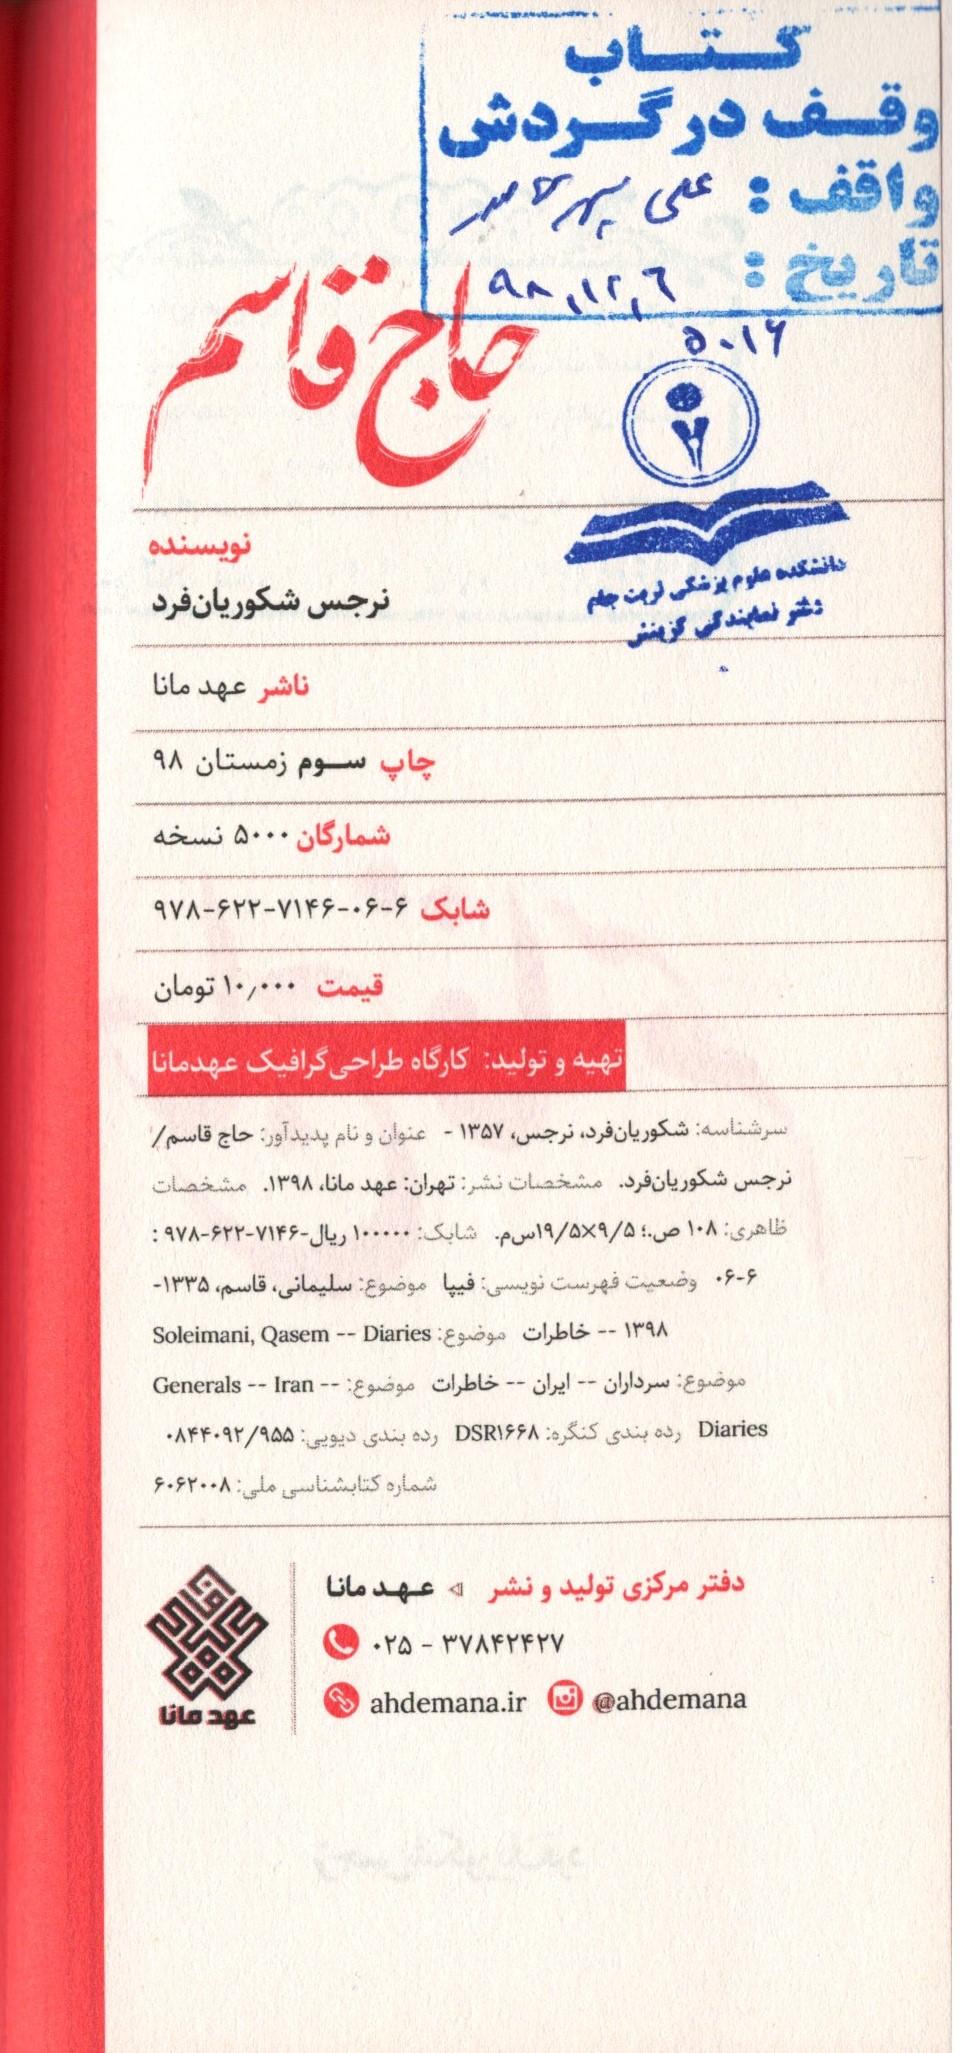 کتاب
وقف در گردش
واقف : علی
تاریخ : ۹۸,۱۲,۶
۵۰۱۶
حاج قاسم
دانشکده علوم پزشکی تربت جام
دفتر نمایندگی گزینش
نویسنده
نرجس شکوریان‌فرد
ناشر عهد مانا
چاپ سوم زمستان ۹۸
شمارگان ۵۰۰۰ نسخه
شابک ۹۷۸-۶۲۲-۷۱۴۶-۰۶-۶
قیمت ۱۰٫۰۰۰ تومان
تهیه و تولید: کارگاه طراحی گرافیک عهدمانا
سرشناسه: شکوریان‌فرد، نرجس، ۱۳۵۷ - عنوان و نام پدیدآور: حاج قاسم/
نرجس شکوریان‌فرد. مشخصات نشر: تهران: عهد مانا، ۱۳۹۸. مشخصات
ظاهری: ۱۰۸ ص.؛ ۹/۵×۱۹/۵س‌م. شابک: ۱۰۰۰۰۰ ریال-۷۱۴۶-۶۲۲-۹۷۸ :
۰۶-۶ وضعیت فهرست نویسی: فیپا موضوع: سلیمانی، قاسم، ۱۳۳۵-
۱۳۹۸ -- خاطرات موضوع: Soleimani, Qasem -- Diaries
موضوع: سرداران -- ایران -- خاطرات موضوع: Generals -- Iran --
Diaries رده بندی کنگره: DSR۱۶۶۸ رده بندی دیویی: ۹۵۵/۰۸۴۴۰۹۲
شماره کتابشناسی ملی: ۶۰۶۲۰۰۸
دفتر مرکزی تولید و نشر عهد مانا
۰۲۵ - ۳۷۸۴۲۴۲۷
ahdemana.ir @ahdemana
عهد مانا